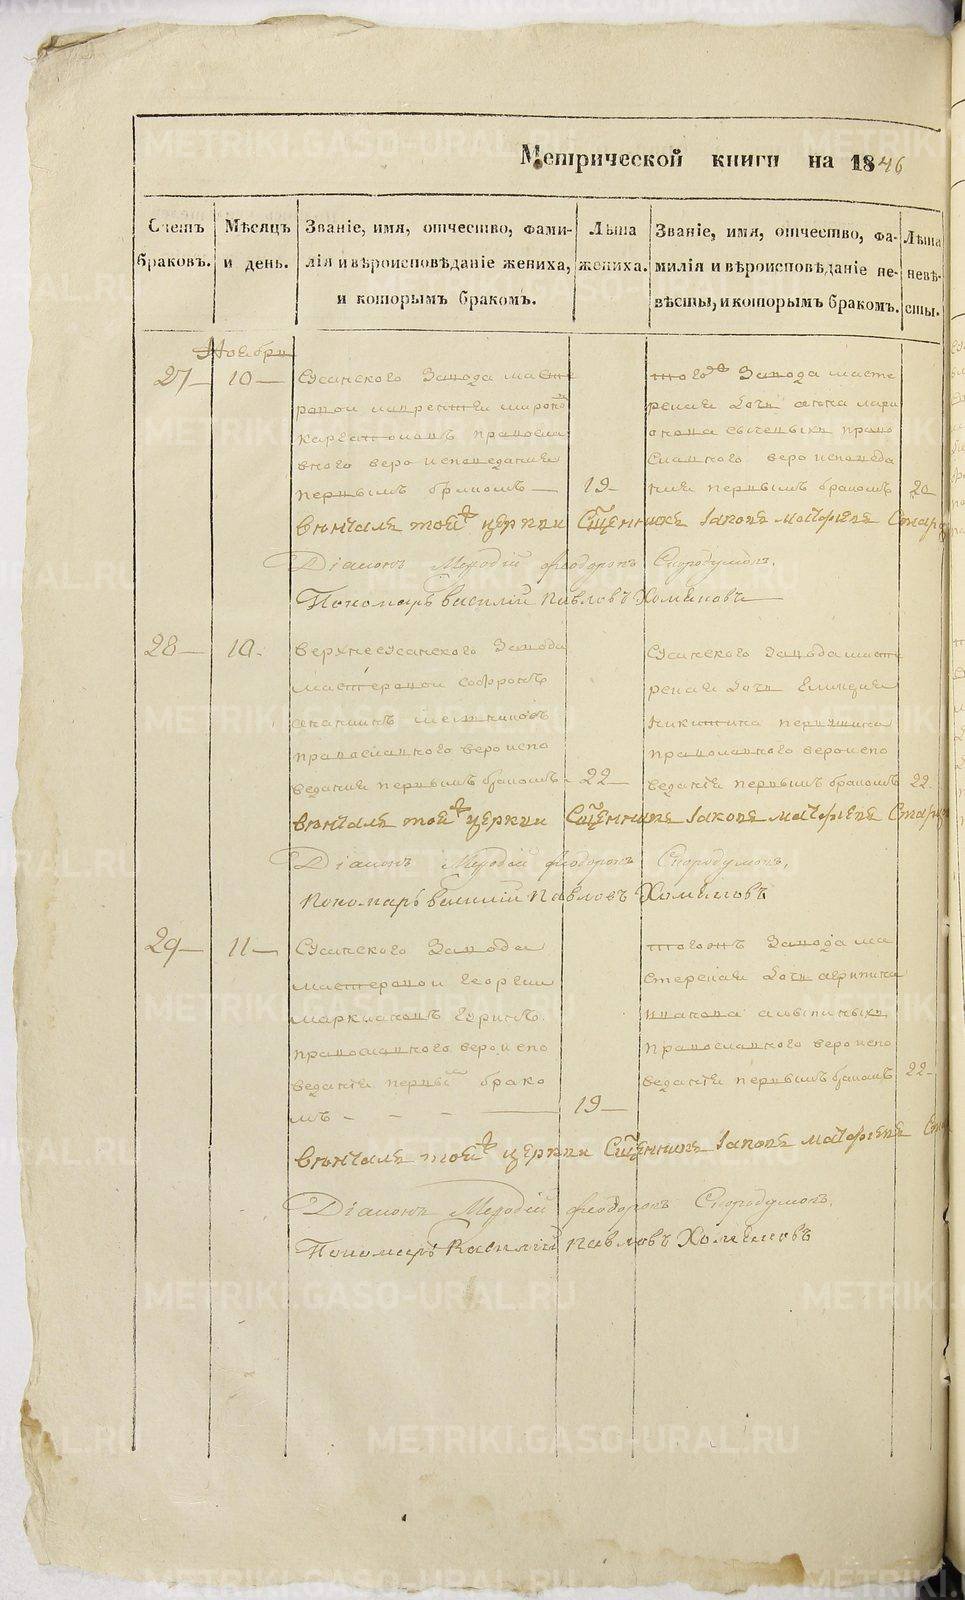 Метрической книги на 1846
Счетъ браковъ.
Мѣсяцъ и день.
Званіе, имя, отчество, фами-
лія и вѣроисповѣданіе жениха,
и которымъ бракомъ.
Лѣта жениха.
Званіе, имя, отчество, фа-
милія и вѣроисповѣданіе не-
вѣсты, и которымъ бракомъ.
Лѣта невѣ-
сты.
Ноября
27 10
Сусанского Завода масте
ровой
православ
ного вероисповедания
первымъ бракомъ
19
того Завода масте
рская дочь анна лари
онова право
славного вероисповеда
ния первымъ бракомъ
20
вѣнчалъ той церкви Сщенникъ Іаковъ матфіевъ
Діаконъ Меѳодій Ѳеодоровъ Скородумовъ.
Пономарь Василій Павловъ Хомяковъ
28 10.
Верхнесусанского Завода
мастеровой Софронъ
ананьинъ
православного вероиспо
ведания первымъ бракомъ
22
Сусанского Завода масте
рская дочь
никитина
православного вероиспо
ведания первымъ бракомъ
22
вѣнчалъ той церкви Сщенникъ Іаковъ матфіевъ
Діаконъ Меѳодій Ѳеодоровъ Скородумовъ.
Пономарь Василій Павловъ Хомяковъ
29 11
Сусанского Завода
мастеровой Георгии
маркиановъ
православного вероиспо
ведания первый брако
мъ
19
Завода ма
стерская дочь агрипина
иванова
православного вероиспо
ведания первымъ бракомъ
22
вѣнчалъ той церкви Сщенникъ Іаковъ матфіевъ
Діаконъ Меѳодій Ѳеодоровъ Скородумовъ.
Пономарь Василій Павловъ Хомяковъ
METRIKI.GASO-URAL.RU